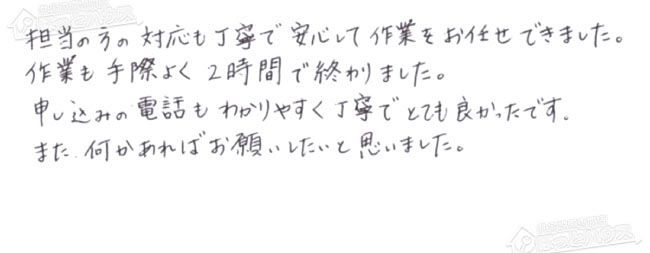 担当の方の対応も丁寧で安心して作業をお任せできました。
作業も手際よく2時間で終わりました。
申し込みの電話もわかりやすく丁寧でとても良かったです。
また何かあればお願いしたいと思いました。